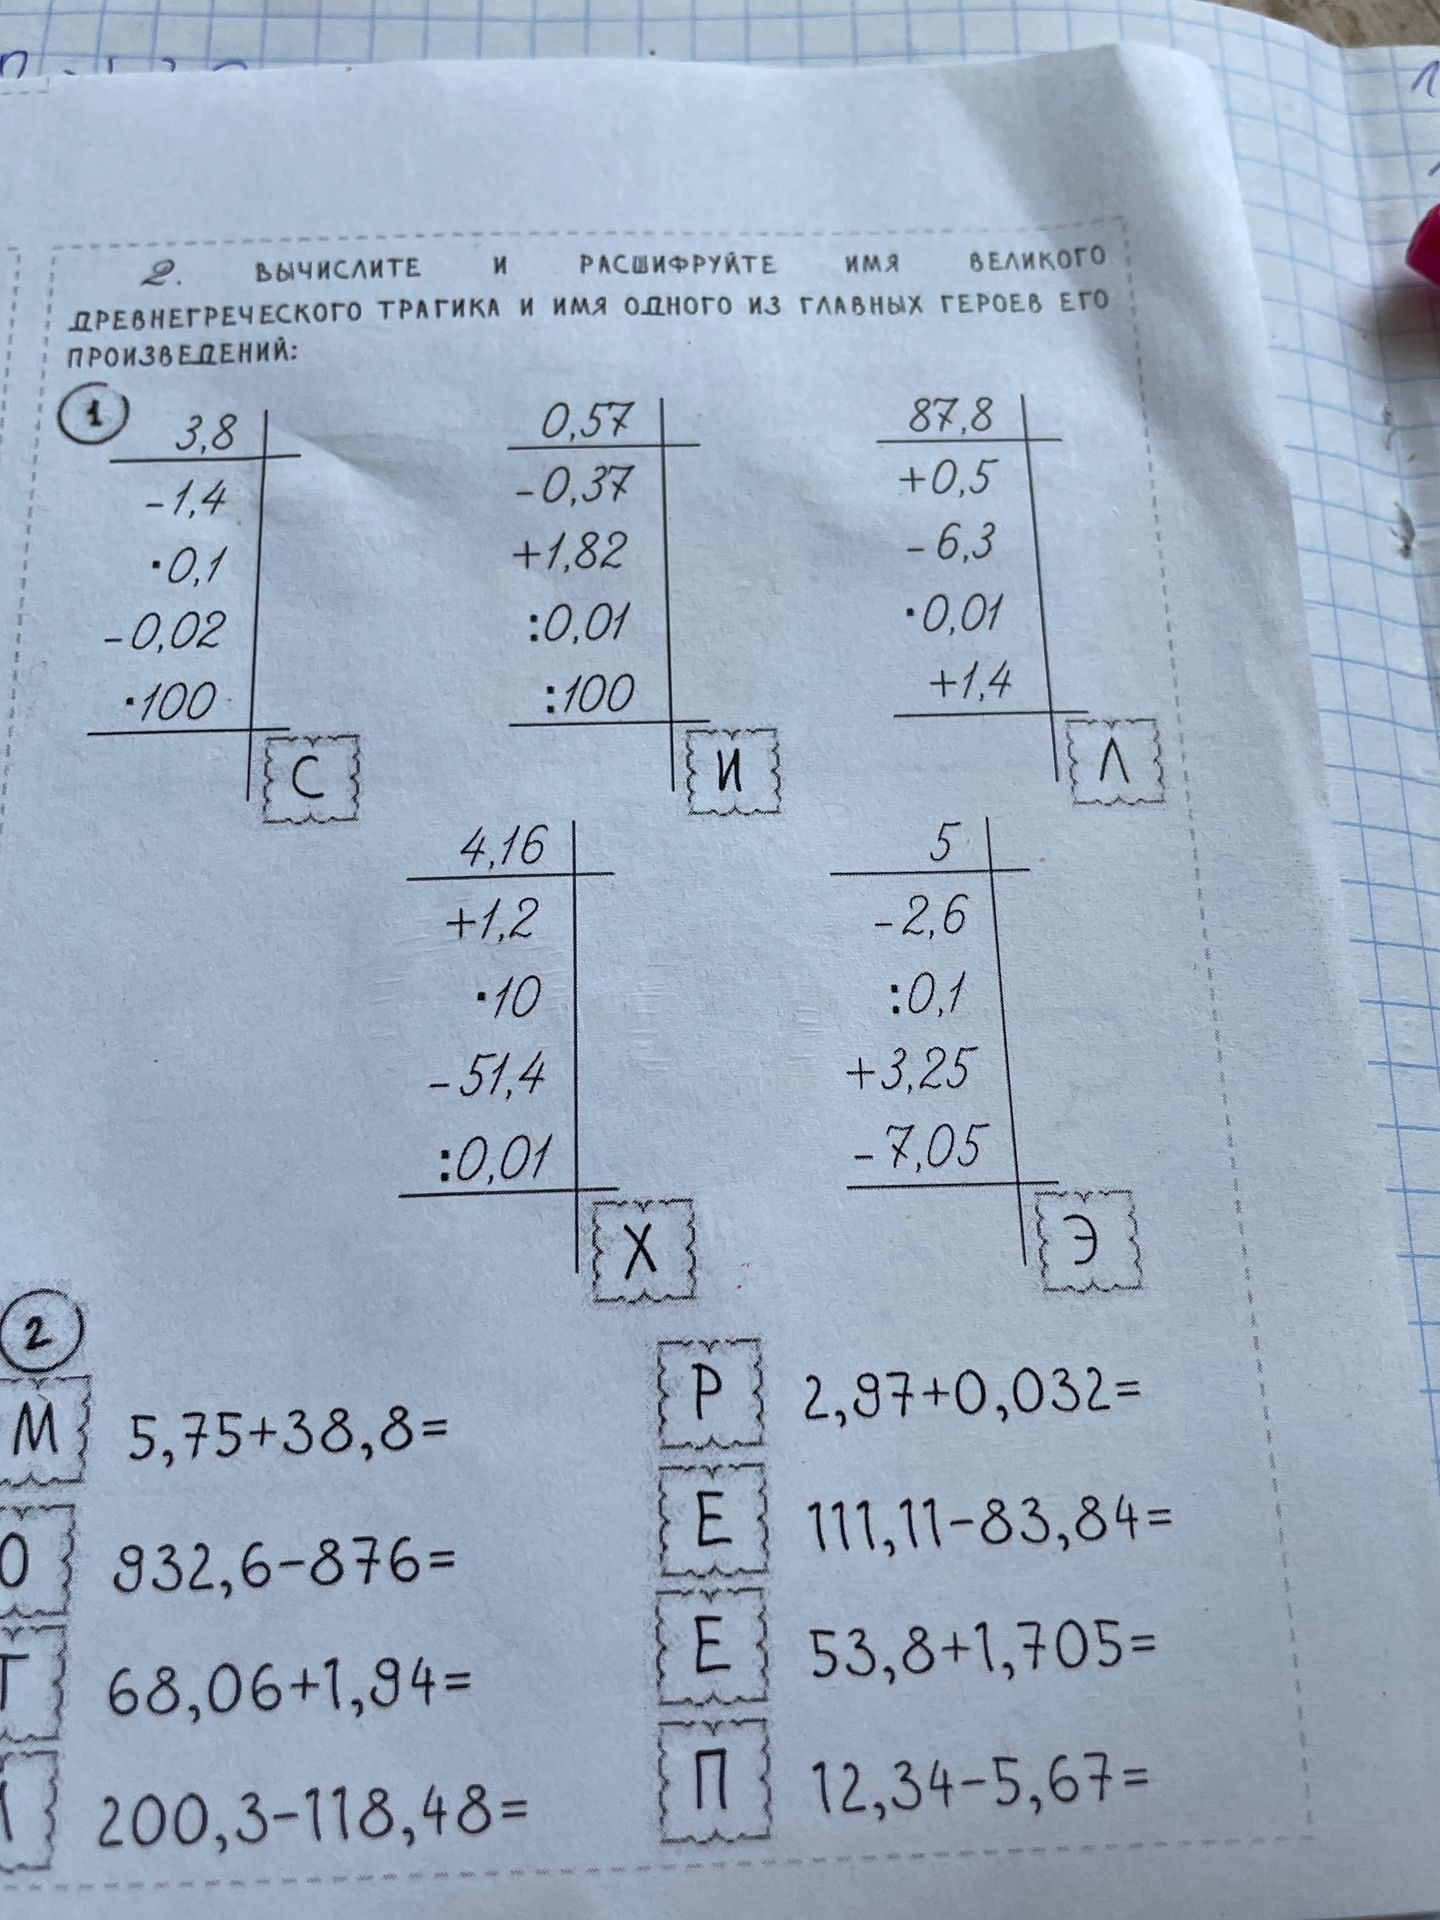 2. ВЫЧИСЛИТЕ И РАСШИФРУЙТЕ ИМЯ ВЕЛИКОГО
ДРЕВНЕГРЕЧЕСКОГО ТРАГИКА И ИМЯ ОДНОГО ИЗ ГЛАВНЫХ ГЕРОЕВ ЕГО
ПРОИЗВЕДЕНИЙ:
1
3,8
-1,4
·0,1
-0,02
·100
С
0,57
-0,37
+1,82
:0,01
:100
И
87,8
+0,5
-6,3
·0,01
+1,4
Л
4,16
+1,2
·10
-51,4
:0,01
Х
5
-2,6
:0,1
+3,25
-7,05
Э
2
М 5,75+38,8=
О 932,6-876=
68,06+1,94=
200,3-118,48=
Р 2,97+0,032=
Е 111,11-83,84=
Е 53,8+1,705=
П 12,34-5,67=